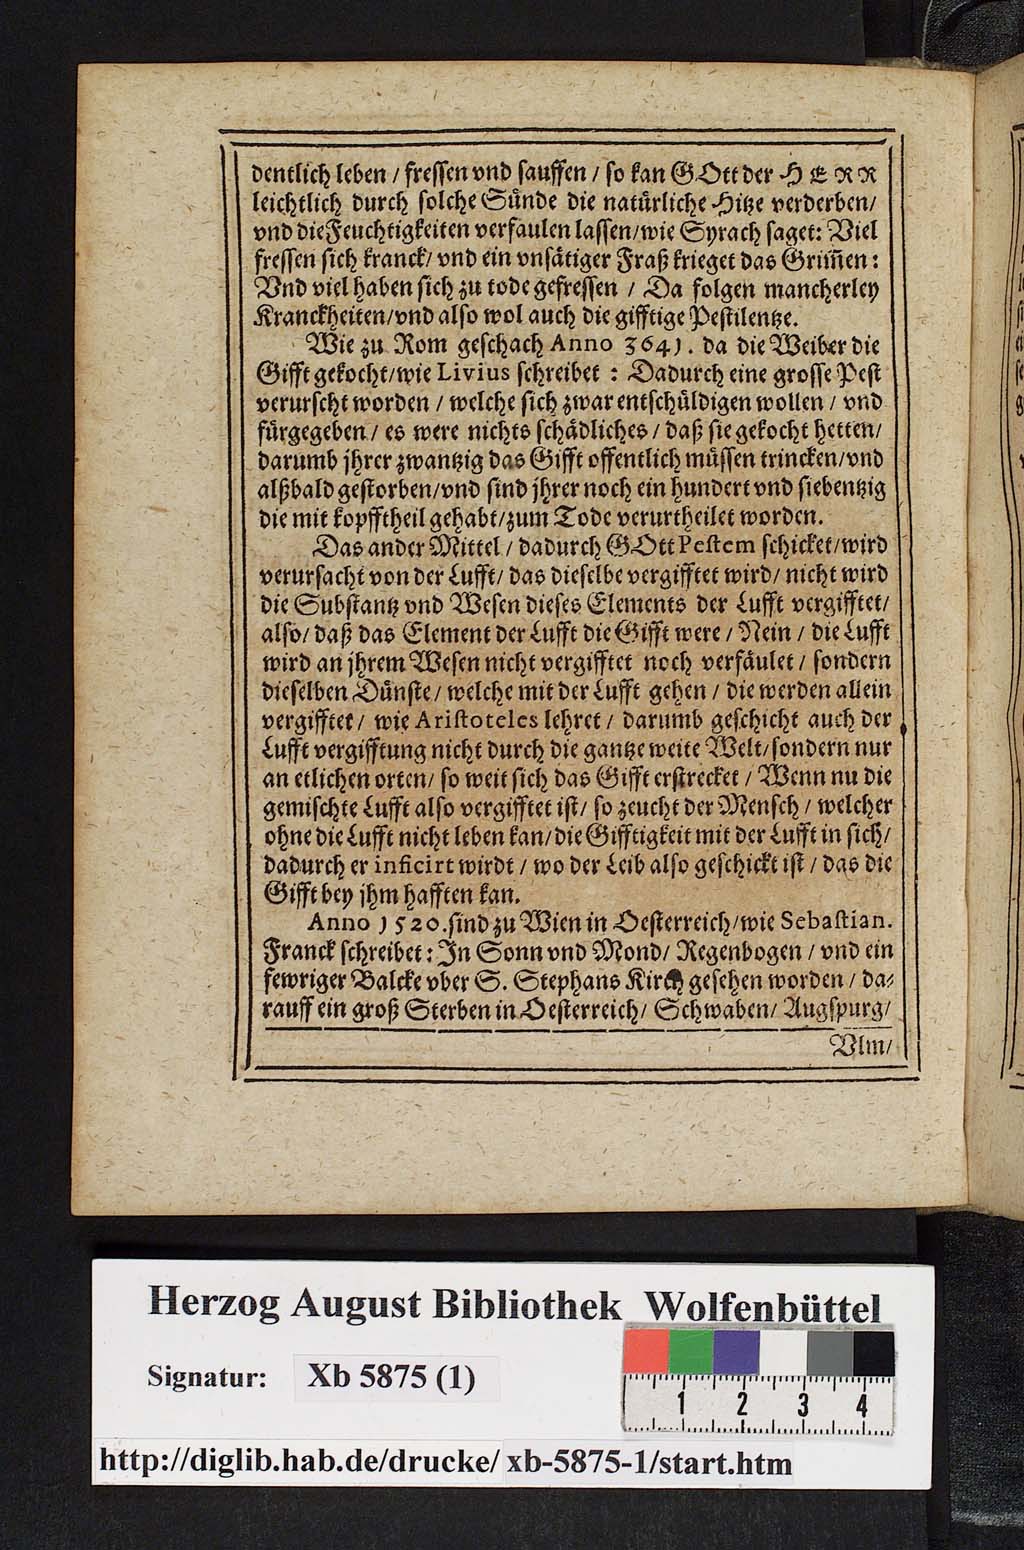 dentlich leben / fressen vnd sauffen / so kan GOtt der HERR
leichtlich durch solche Sünde die natürliche Hitze verderben/
vnd die Feuchtigkeiten verfaulen lassen/wie Syrach saget: Viel
fressen sich kranck/ vnd ein vnsätiger Fraß krieget das Grim̃en:
Vnd viel haben sich zu tode gefressen / Da folgen mancherley
Kranckheiten/vnd also wol auch die gifftige Pestilentze.
Wie zu Rom geschach Anno 3641. da die Weiber die
Gifft gekocht/wie Livius schreibet : Dadurch eine grosse Pest
verurscht worden / welche sich zwar entschüldigen wollen / vnd
fürgegeben / es were nichts schädliches / daß sie gekocht hetten/
darumb jhrer zwantzig das Gifft offentlich müssen trincken/vnd
alßbald gestorben/vnd sind jhrer noch ein hundert vnd siebentzig
die mit kopfftheil gehabt/zum Tode verurtheilet worden.
Das ander Mittel / dadurch GOtt Pestem schicket/wird
verursacht von der Lufft/ das dieselbe vergifftet wird/ nicht wird
die Substantz vnd Wesen dieses Elements der Lufft vergifftet/
also/ daß das Element der Lufft die Gifft were / Nein / die Lufft
wird an jhrem Wesen nicht vergifftet noch verfäulet / sondern
dieselben Dünste/ welche mit der Lufft gehen / die werden allein
vergifftet / wie Aristoteles lehret / darumb geschicht auch der
Lufft vergifftung nicht durch die gantze weite Welt/sondern nur
an etlichen orten/ so weit sich das Gifft erstrecket / Wenn nu die
gemischte Lufft also vergifftet ist/ so zeucht der Mensch / welcher
ohne die Lufft nicht leben kan/die Gifftigkeit mit der Lufft in sich/
dadurch er inficirt wirdt / wo der Leib also geschickt ist / das die
Gifft bey jhm hafften kan.
Anno 1520. sind zu Wien in Oesterreich/wie Sebastian.
Franck schreibet: In Sonn vnd Mond/ Regenbogen / vnd ein
fewriger Balcke vber S. Stephans Kirch gesehen worden / da-
rauff ein groß Sterben in Oesterreich/ Schwaben/ Augspurg/
Vlm/
Herzog August Bibliothek Wolfenbüttel
Signatur: Xb 5875 (1)
1 2 3 4
http://diglib.hab.de/drucke/ xb-5875-1/start.htm